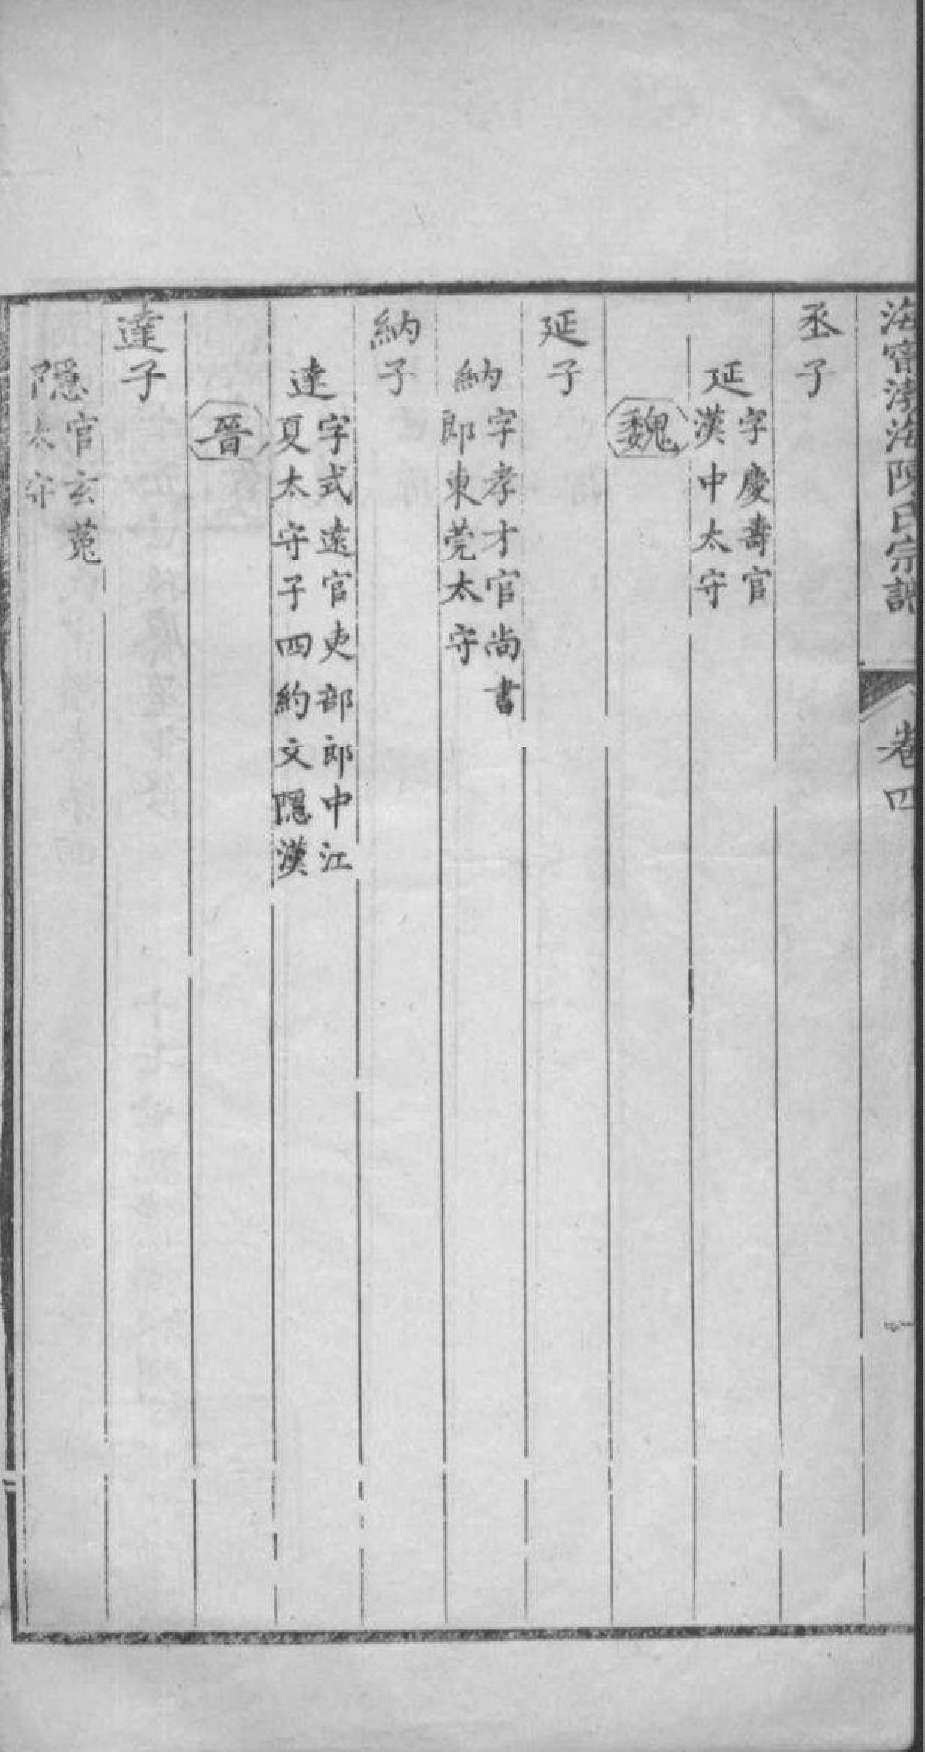 海甯渤海陳氏宗譜
卷四
丞子
延字慶壽官
漢中太守
魏
延子
納字孝才官尚書
郎東莞太守
納子
達字式遠官吏部郎中江
夏太守子四約文隱漢
晉
達子
隱官玄菟
太守